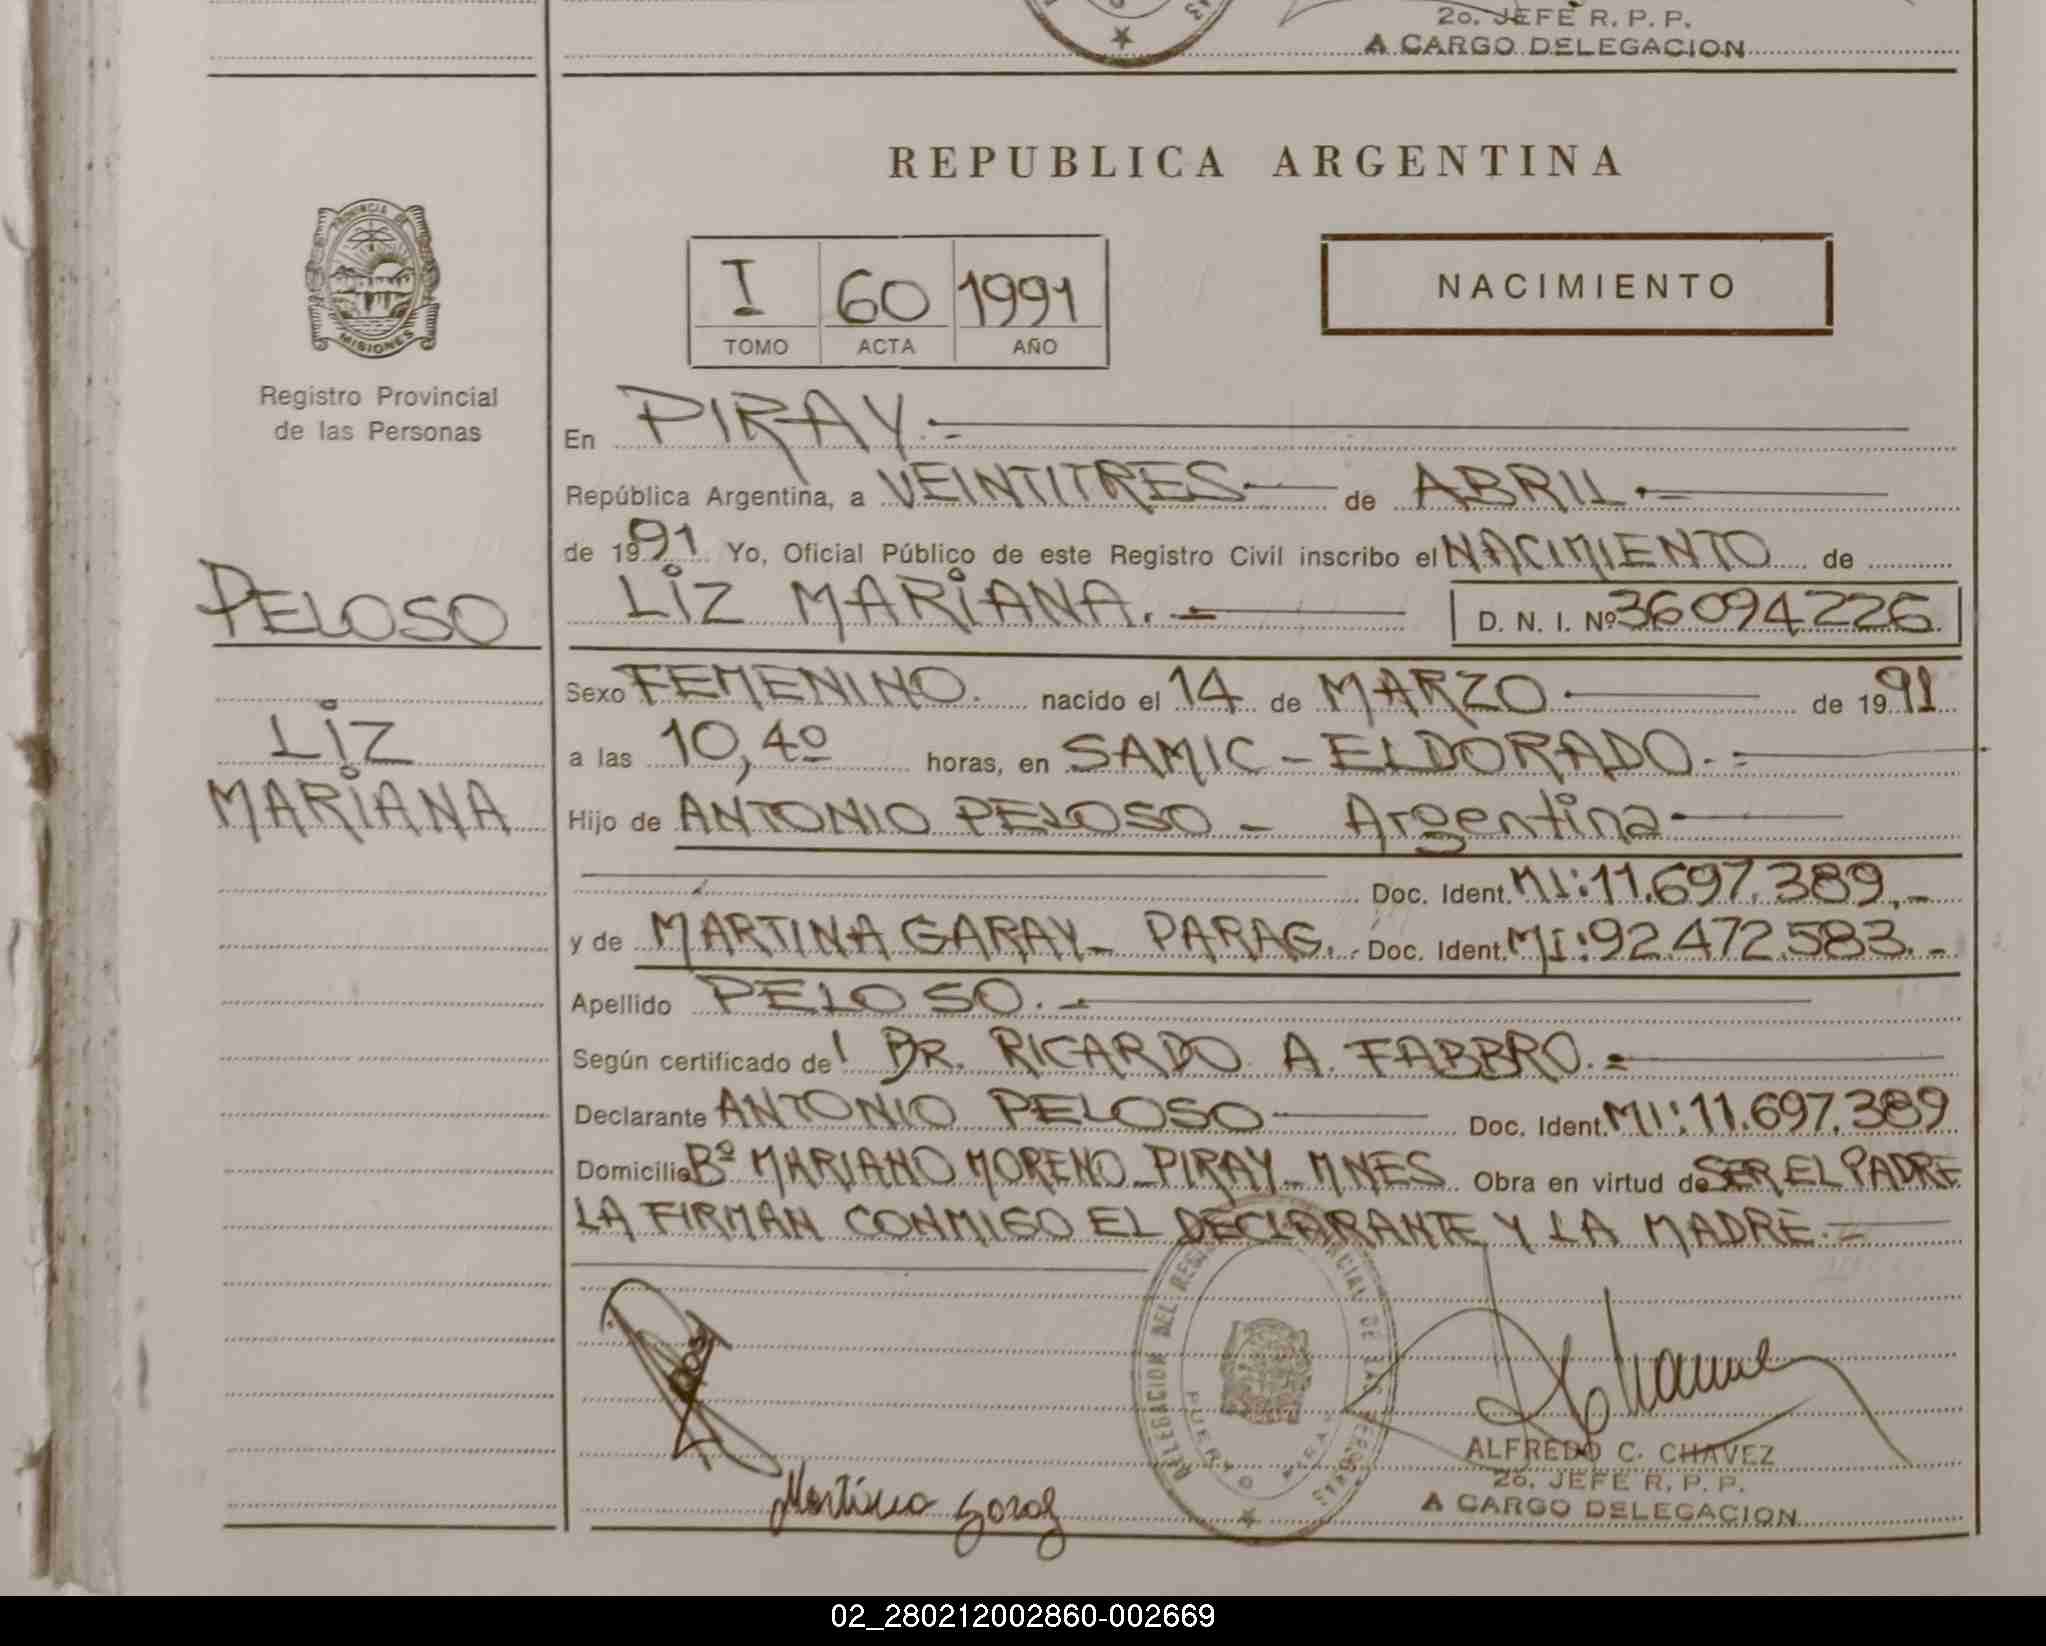 2o. JEFE R. P. P.
A CARGO DELEGACION
REPUBLICA ARGENTINA
PROVINCIA DE
MISIONES
Registro Provincial
de las Personas
I 60 1991
TOMO ACTA AÑO
NACIMIENTO
En PIRAY.=
República Argentina, a VEINTITRES de ABRIL.=
de 1991 Yo, Oficial Público de este Registro Civil inscribo el NACIMIENTO de
PELOSO
LIZ MARIANA.= D. N. I. Nº 36094226
Sexo FEMENINO. nacido el 14 de MARZO de 1991
LIZ
a las 10,40 horas, en SAMIC - ELDORADO.=
MARIANA
Hijo de ANTONIO PELOSO - Argentina
Doc. Ident. MI: 11.697.389.-
y de MARTINA GARAY - PARAG. Doc. Ident. MI: 92.472.583.-
Apellido PELOSO.=
Según certificado de DR. RICARDO A. FABBRO.=
Declarante ANTONIO PELOSO Doc. Ident. MI: 11.697.389
Domicilio Bº MARIANO MORENO - PIRAY - MNES Obra en virtud de SER EL PADRE
LA FIRMAN CONMIGO EL DECLARANTE Y LA MADRE.=
DELEGACION DEL DE LAS
PUERTO PIRAY
Martina Garay
ALFREDO C. CHAVEZ
2o. JEFE R. P. P.
A CARGO DELEGACION
02_280212002860-002669